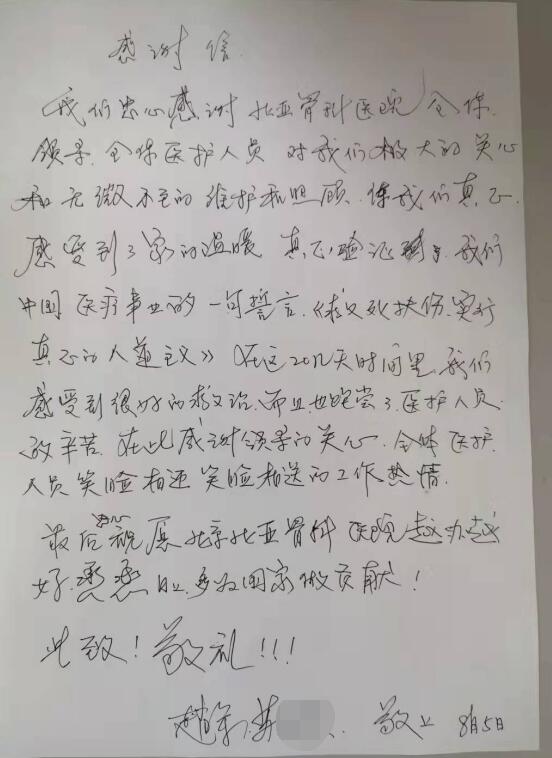 感谢信
我们忠心感谢北亚骨科医院全体
领导、全体医护人员对我们极大的关心
和无微不至的维护和照顾、使我们真正
感受到了家的温暖 真正验证了我们
中国医疗事业的一句誓言《救死扶伤、实行
真正的人道主义》在这20几天时间里我们
感受到很好的救治、而且也饱尝了医护人员
的辛苦、在此感谢领导的关心、全体医护
人员笑脸相迎 笑脸相送的工作热情
最后衷心祝愿北京北亚骨科医院越办越
好、蒸蒸日上、多为国家做贡献！
此致！敬礼！！！
赵 敬上 8月5日